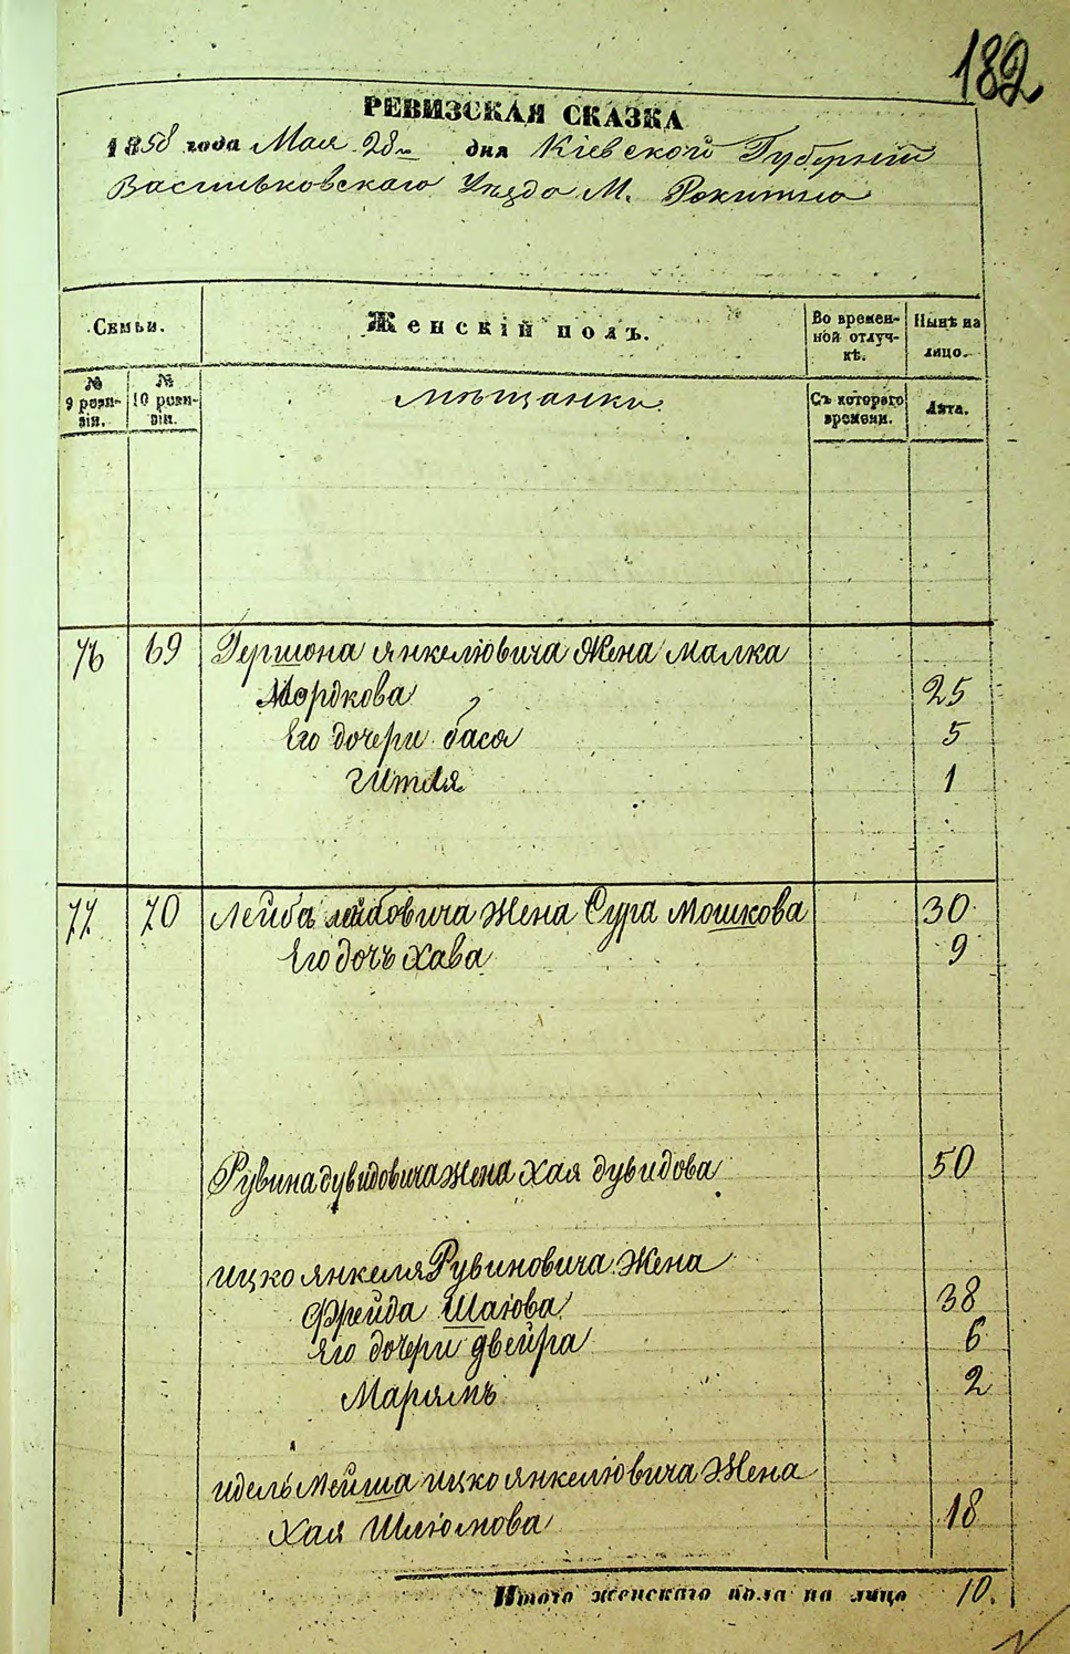 182
РЕВИЗСКАЯ СКАЗКА
1858 года Мая 28 дня Кіевской Губерніи
Васильковскаго Уѣзда М. Рокитно
Семьи.
Женскій полъ.
Во времен-
ной отлуч-
кѣ.
Нынѣ на
лицо.
№
9 реви-
зіи.
№
10 реви-
зіи.
мѣщанки
Съ котораго
времени.
Лѣта.
76 69 Гершона Янкелювича Жена Малка
Мордкова 25
Его дочери Бася 5
Гитля 1
77 70 Лейба Лейбовича Жена Сура Мошкова 30
Его дочь Хава 9
Рувина Дувидовича Жена Хая Дувидова 50
Ицко Янкеля Рувиновича Жена
Фрейда Шаіова 38
Его дочери Двейра 6
Марямъ 2
Идель Мейша Ицко Янкелювича Жена
Хая Шліомова 18
Итого женскаго пола на лицо 10.